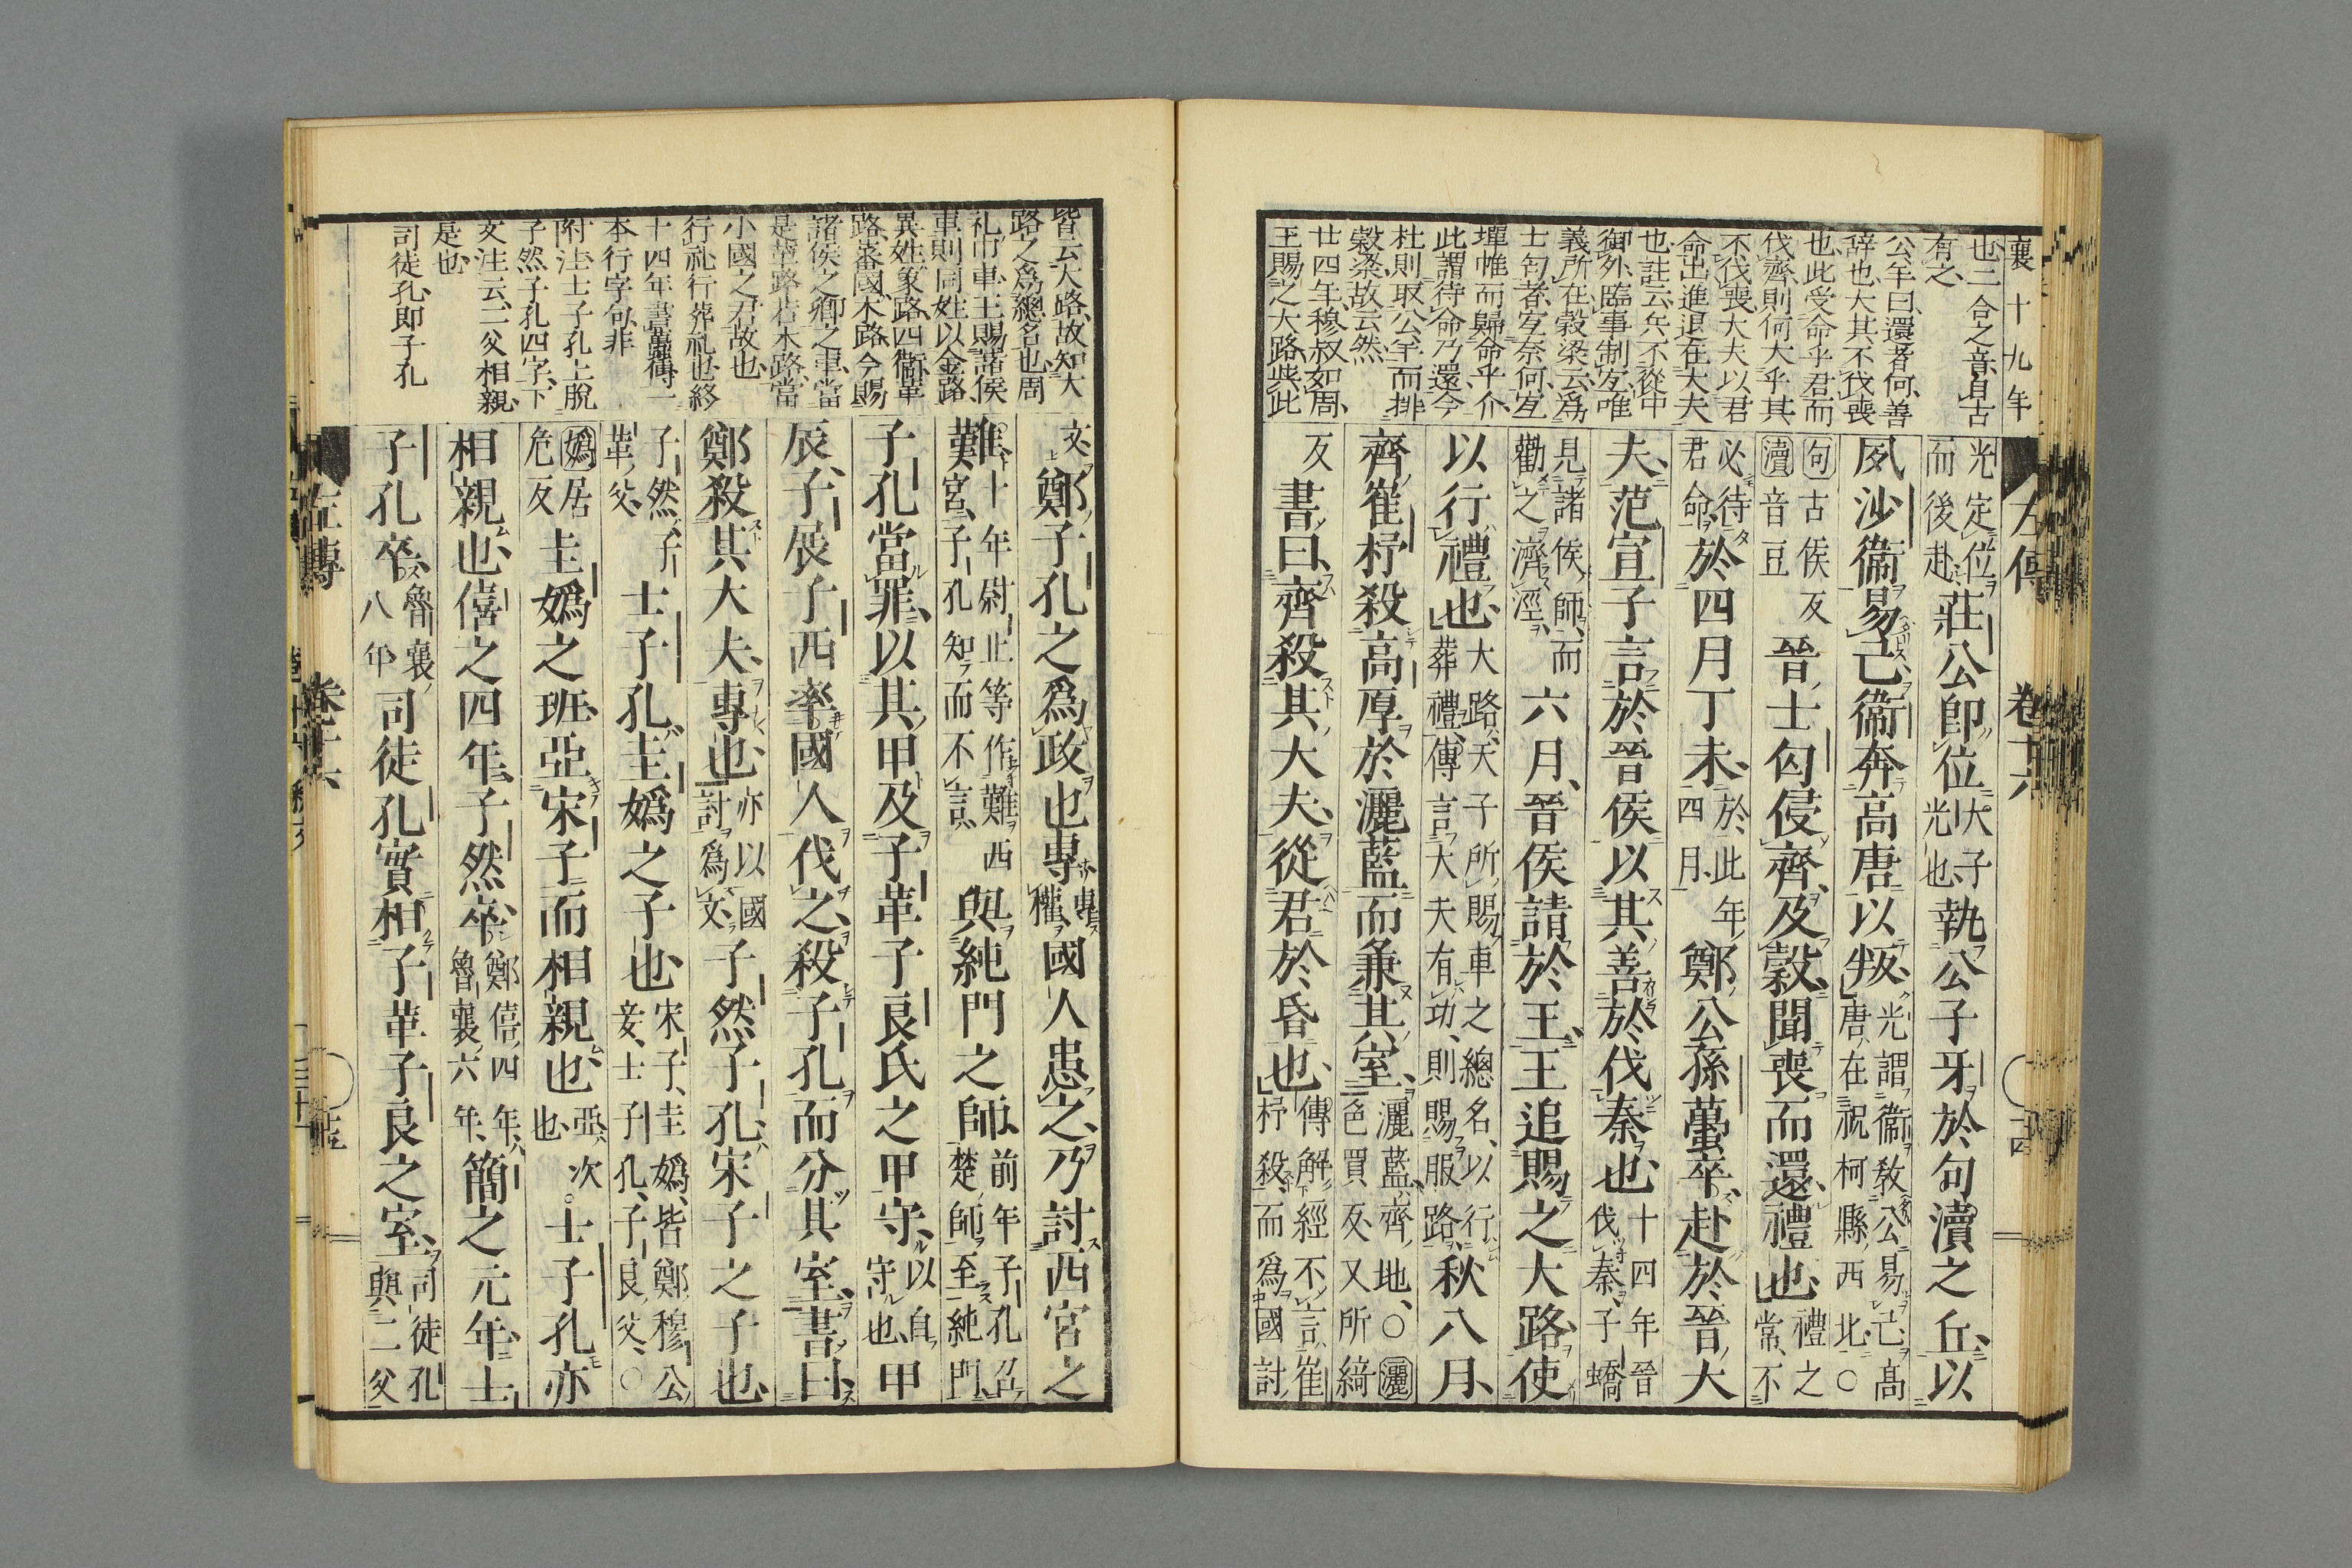 襄十九年
左傳 卷十六
也二合之音自古
有之
公羊曰還者何善
辭也大其不伐喪
也此受命乎君而
伐齊則何大乎其
不伐喪大夫以君
命出進退在大夫
也註云兵不從中
御外臨事制宜唯
義所在穀梁云爲
士匄者宜奈何宜
墠帷而歸命乎介
此謂待命乃還今
杜則取公羊而排
穀梁故云然
廿四年穆叔如周
王賜之大路此此
光定位而後赴莊公即位大子光也執公子牙於句瀆之丘以
夙沙衞易己衞奔高唐以叛光謂衞教公易己高唐在祝柯縣西北○
句古侯反瀆音豆晉士匄侵齊及穀聞喪而還禮也禮之常不
必待君命於四月丁未於此年四月鄭公孫蠆卒赴於晉大
夫范宣子言於晉侯以其善於伐秦也十四年晉伐秦子蟜
見諸侯師而勸之濟涇六月晉侯請於王王追賜之大路使
以行禮也大路天子所賜車之總名以行葬禮傳言大夫有功則賜服路秋八月
齊崔杼殺高厚於灑藍而兼其室灑藍齊地○灑色買反又所綺
反書曰齊殺其大夫從君於昏也傳解經不言崔杼殺而爲國討
皆云大路故知大
路之爲總名也周
礼巾車王賜諸侯
車則同姓以金路
異姓象路四衞革
路蕃國木路今賜
諸侯之卿之車當
是革路若木路當
小國之君故也
行礼行葬礼也終
十四年書蠆傳一
本行字句非
附注士子孔上脫
子然子孔四字下
文注云二父相親
是也
司徒孔即子孔
文鄭子孔之爲政也專專權國人患之乃討西宮之
難十年尉止等作難西宮子孔知而不言與純門之師前年子孔召楚師至純門
子孔當罪以其甲及子革子良氏之甲守以自守也甲
辰子展子西率國人伐之殺子孔而分其室書曰
鄭殺其大夫專也亦以國討爲文子然子孔宋子之子也
子然子革父士子孔圭嬀之子也宋子圭嬀皆鄭穆公妾士子孔子良父○
嬀居危反圭嬀之班亞宋子而相親也亞次也士子孔亦
相親也僖之四年子然卒鄭僖四年魯襄六年簡之元年士
子孔卒魯襄八年司徒孔實相子革子良之室司徒孔與二父
左傳 卷十六